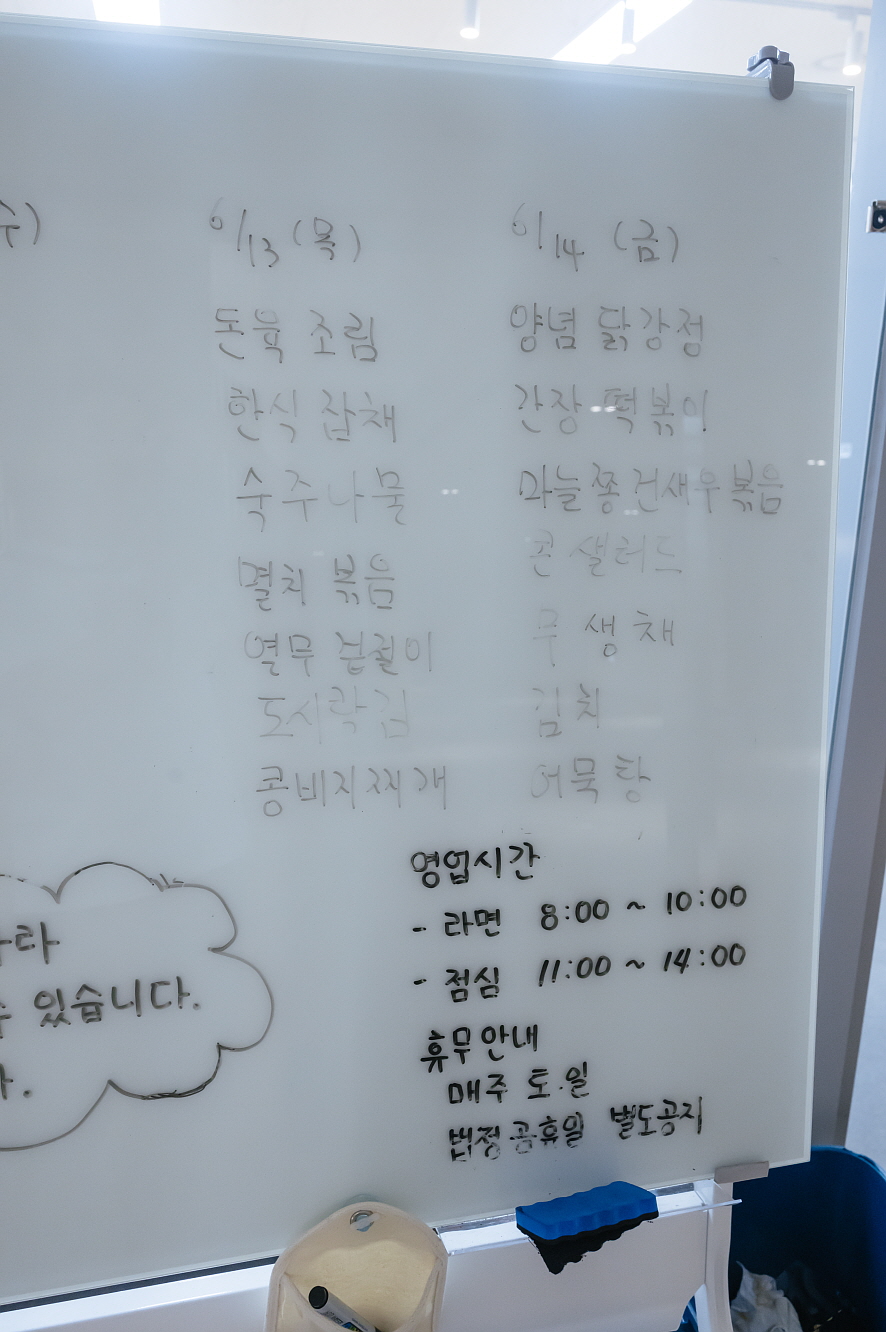 수)
6/13 (목)
돈육 조림
한식 잡채
숙주나물
멸치 볶음
열무 겉절이
도시락김
콩비지찌개
6/14 (금)
양념 닭강정
간장 떡볶이
마늘쫑건새우볶음
콘 샐러드
무 생채
김치
어묵탕
영업시간
- 라면 8:00 ~ 10:00
- 점심 11:00 ~ 14:00
휴무안내
매주 토.일
법정공휴일 별도공지
라
있습니다.